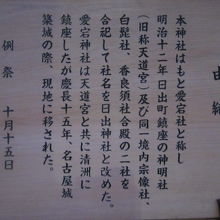 由緒
本神社はもと愛宕社と称し
明治十二年日出町鎮座の神明社
(旧称天道宮)及び同一境内宗像社、
白髭社、香良須社合殿の二社を
合祀して社名を日出神社と改めた。
愛宕神社は天道宮と共に清洲に
鎮座したが慶長十五年、名古屋城
築城の際、現地に移された。
例祭 十月十五日